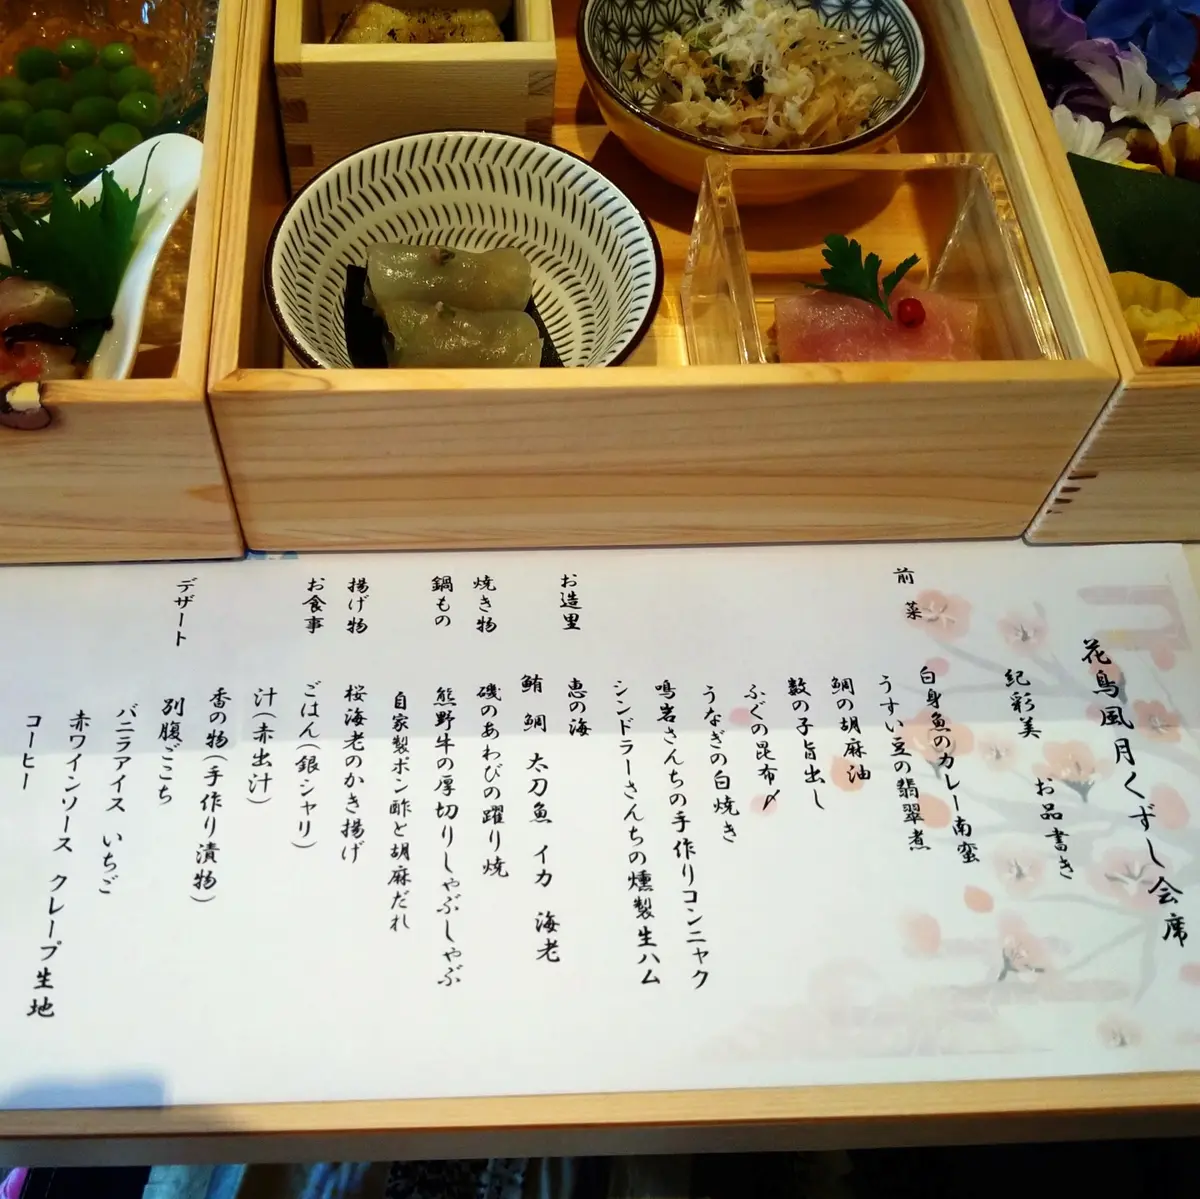 花鳥風月くずし会席
お品書き
紀彩美
前菜
白身魚のカレー南蛮
うすい豆の翡翠煮
鯛の胡麻油
数の子旨出し
ふぐの昆布〆
うなぎの白焼き
鳴岩さんちの手作りコンニャク
シンドラーさんちの燻製生ハム
お造里
恵の海
鮪 鯛 太刀魚 イカ 海老
焼き物
磯のあわびの躍り焼
鍋もの
熊野牛の厚切りしゃぶしゃぶ
自家製ポン酢と胡麻だれ
揚げ物
桜海老のかき揚げ
お食事
ごはん(銀シャリ)
汁(赤出汁)
香の物(手作り漬物)
デザート
別腹ごこち
バニラアイス いちご
赤ワインソース クレープ生地
コーヒー